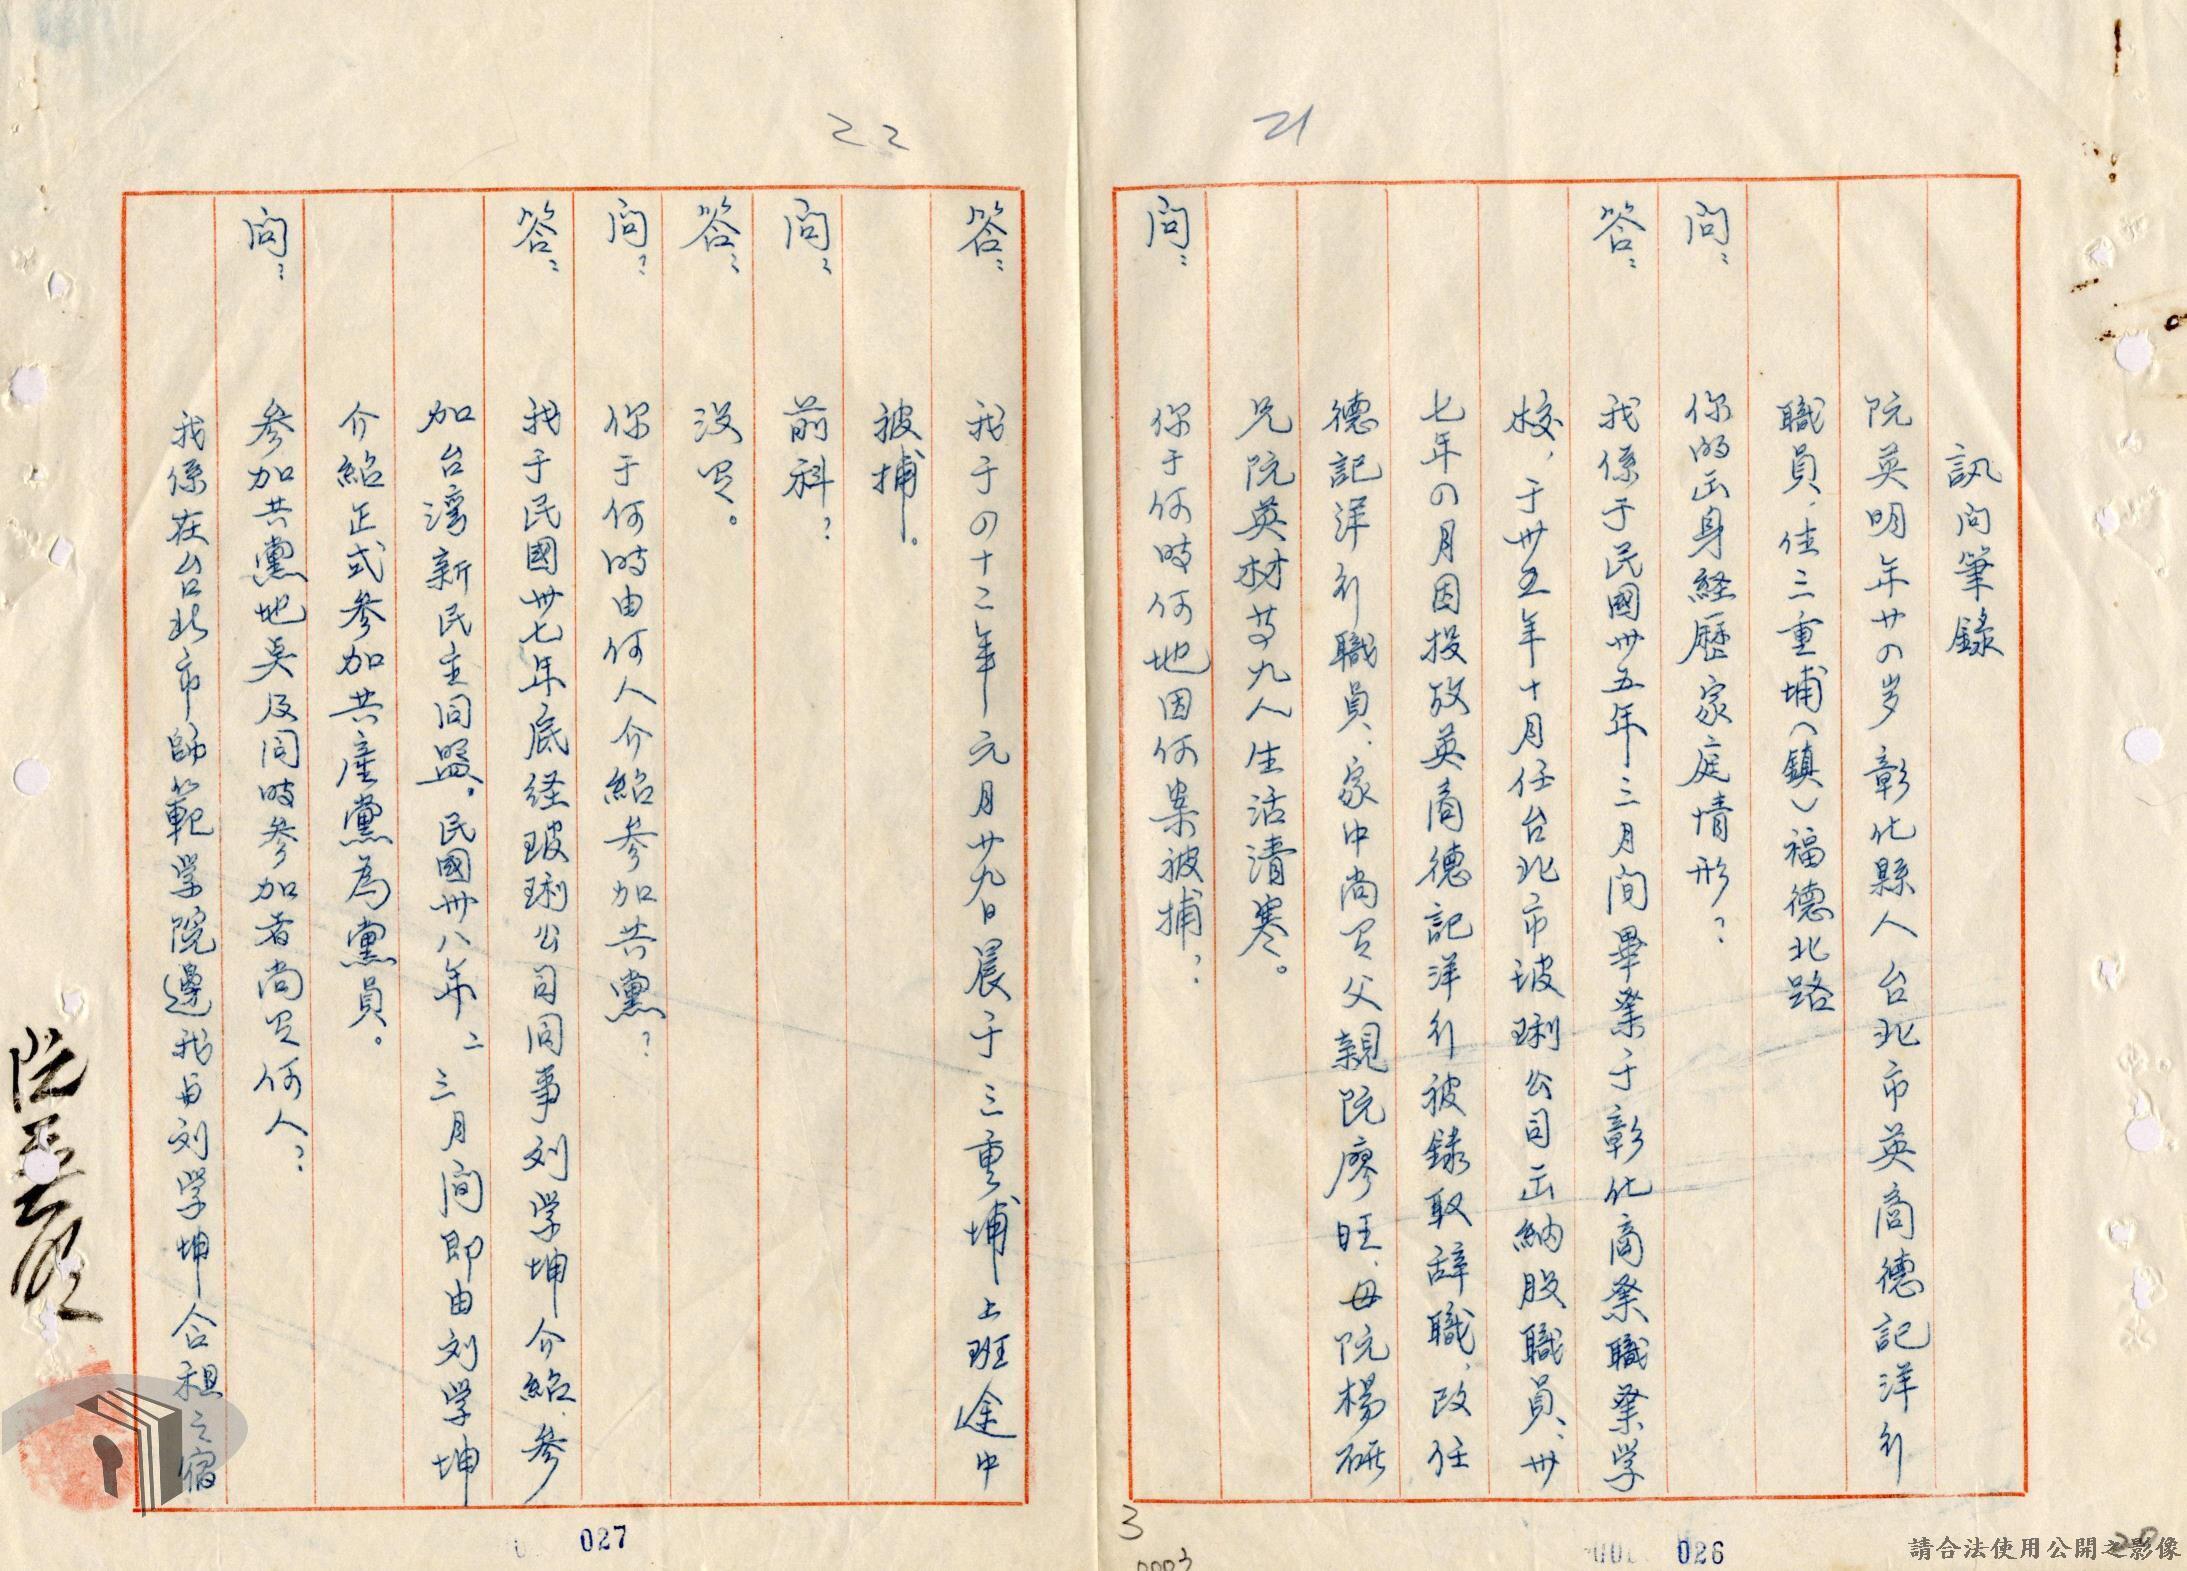 21
訊问筆錄
阮英明年廿四岁彰化縣人台北市英商德記洋行
職員、住三重埔(鎮)福德北路
问：你的出身経歷家庭情形？
答：我係于民國卅五年三月间畢業于彰化商業職業学
校，于卅五年十月任台北市玻琍公司出納股職員、卅
七年四月因投攷英商德記洋行被錄取辞職、改任
德記洋行職員、家中尚有父親阮廖旺、母阮楊研
兄阮英材等九人生活清寒。
问：你于何時何地因何案被捕？
3
0003
026
22
答：我于四十二年元月廿九日晨于三重埔上班途中
被捕。
问：前科？
答：没有。
问：你于何時由何人介紹参加共黨？
答：我于民國卅七年底经玻琍公司同事刘学坤介紹、参
加台湾新民主同盟。民國卅八年二三月间即由刘学坤
介紹正式参加共産黨為黨員。
问：参加共黨地点及同時参加者尚有何人？
我係在台北市師範学院邊我与刘学坤合租之宿
阮英明
027
請合法使用公開之影像